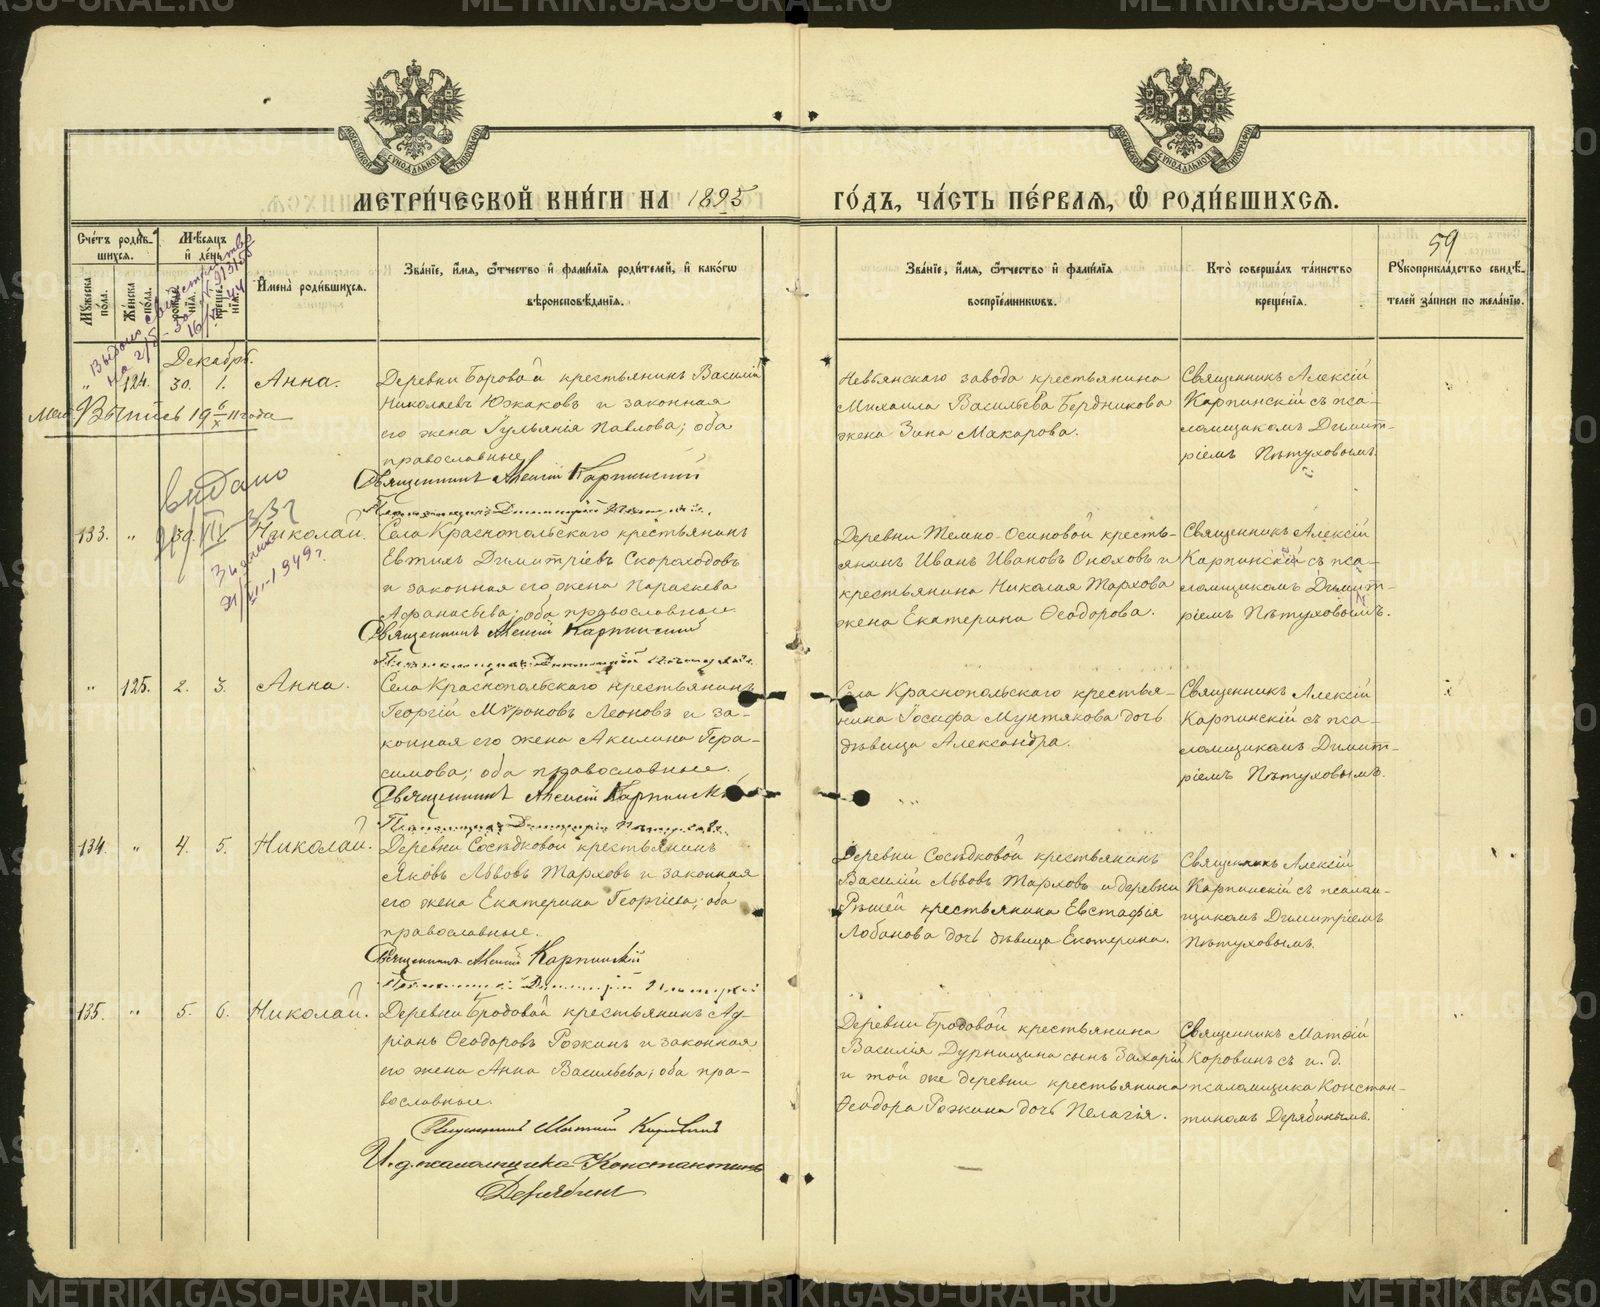 МЕТРИ́ЧЕСКОЙ КНИ́ГИ НА 1895
ГО́ДЪ, ЧА́СТЬ ПЕ́РВАЯ, Ѡ РОДИ́ВШИХСЯ.
59
Счетъ родив-
шихся.
Мѣсяцъ
и день
Мужеска
пола.
Женска
пола.
рожде-
нія.
креще-
нія.
Имена родившихся.
Званіе, имя, отчество и фамилія родителей, и какогѡ
вѣроисповѣданія.
Званіе, имя, отчество и фамилія
воспріемникѡвъ.
Кто совершалъ таинство
крещенія.
Рукоприкладство свидѣ-
телей записи по желанію.
Декабрь.
" 124. 30. 1. Анна.
Деревни Боровой крестьянинъ Василій
Николаевъ Южаковъ и законная
его жена Іульянія Павлова; оба
православные
Священникъ Алексій Карпинскій
Невьянскаго завода крестьянина
Михаила Васильева Бердникова
жена Зина Макарова.
Священникъ Алексій
Карпинскій съ пса-
ломщикомъ Димит-
ріемъ Пѣтуховымъ.
выдано
133. " 30. Николай.
Села Краснопольскаго крестьянинъ
Евтихъ Димитріевъ Скороходовъ
и законная его жена Параскева
Афанасьева; оба православные.
Священникъ Алексій Карпинскій
Деревни Темно-Осиновой кресть-
янинъ Иванъ Ивановъ Онохов и
крестьянина Николая Тархова
жена Екатерина Ѳеодорова.
Священникъ Алексій
Карпинскій съ пса-
ломщикомъ Димит-
ріемъ Пѣтуховымъ.
" 125. 2. 3. Анна.
Села Краснопольскаго крестьянинъ
Георгій Мѵроновъ Леоновъ и за-
конная его жена Акилина Гера-
симова; оба православные.
Священникъ Алексій Карпинскій
Села Краснопольскаго крестья-
нина Іосифа Мунтякова дочь
дѣвица Александра.
Священникъ Алексій
Карпинскій съ пса-
ломщикомъ Димит-
ріемъ Пѣтуховымъ.
134. " 4. 5. Николай.
Деревни Сосѣдковой крестьянинъ
Яковъ Львовъ Тарховъ и законная
его жена Екатерина Георгіева; оба
православные.
Священникъ Алексій Карпинскій
Деревни Сосѣдковой крестьянинъ
Василій Львовъ Тарховъ и деревни
Рѣшей крестьянина Евстафія
Лобанова дочь дѣвица Екатерина.
Священникъ Алексій
Карпинскій съ псалом-
щикомъ Димитріемъ
Пѣтуховымъ.
135. " 5. 6. Николай.
Деревни Бродовой крестьянинъ Ад-
ріанъ Ѳеодоровъ Рожинъ и законная
его жена Анна Васильева; оба пра-
вославные.
Священникъ Матѳій Коровинъ
И. д. псаломщика Константинъ
Дерябинъ
Деревни Бродовой крестьянина
Василія Дурницина сынъ Захарій
и той же деревни крестьянина
Ѳеодора Рожина дочь Пелагія.
Священникъ Матѳій
Коровинъ съ и. д.
псаломщика Констан-
тиномъ Дерябинымъ.
METRIKI.GASO-URAL.RU